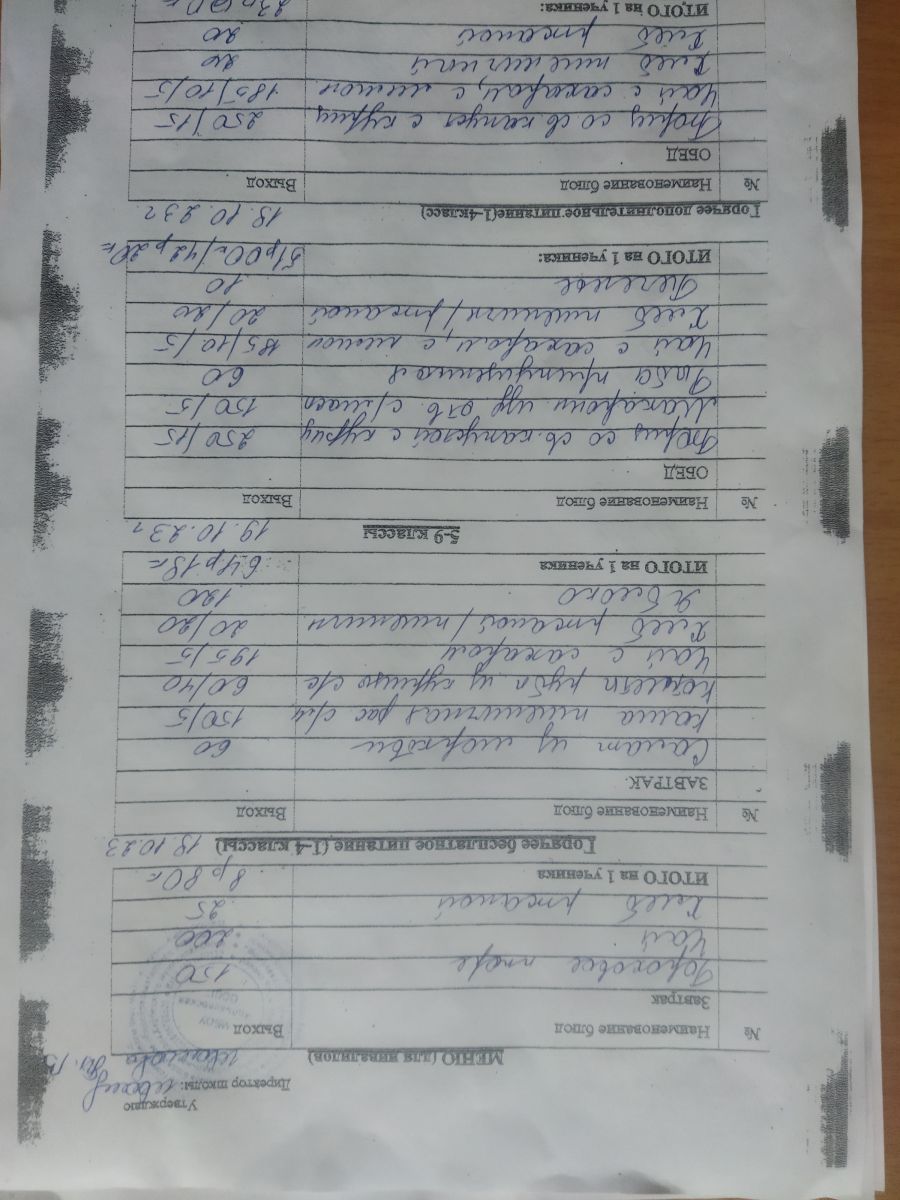 Утверждаю
Директор школы:
МЕНЮ (для инвалидов)
№ Наименование блюд Выход
Завтрак
Гороховое пюре 150
Чай 200
Хлеб ржаной 25
ИТОГО на 1 ученика 8р80к
Горячее бесплатное питание (1-4 классы) 18.10.23
№ Наименование блюд Выход
ЗАВТРАК.
Салат из моркови 60
Каша пшеничная рас. с/м 150/5
Котлета рубл. из курицы с/с 60/40
Чай с сахаром 195/5
Хлеб ржаной/пшеничн. 20/20
Яблоко 120
ИТОГО на 1 ученика 64р18к
5-9 классы 19.10.23г
№ Наименование блюд Выход
ОБЕД
Борщ со св. капустой с куриц 250/15
Макароны изд. отв. с/масл 150/5
Рыба припущенная 60
Чай с сахаром, с лимон 185/10/5
Хлеб пшеничн/ржаной 20/20
Печенье 10
ИТОГО на 1 ученика: 51р00к/42р20к
Горячее дополнительное питание(1-4класс) 18.10.23г.
№ Наименование блюд Выход
ОБЕД
Борщ со св капуст с куриц 250/15
Чай с сахаром, с лимон. 185/10/5
Хлеб пшеничный 20
Хлеб ржаной 20
ИТОГО на 1 ученика: